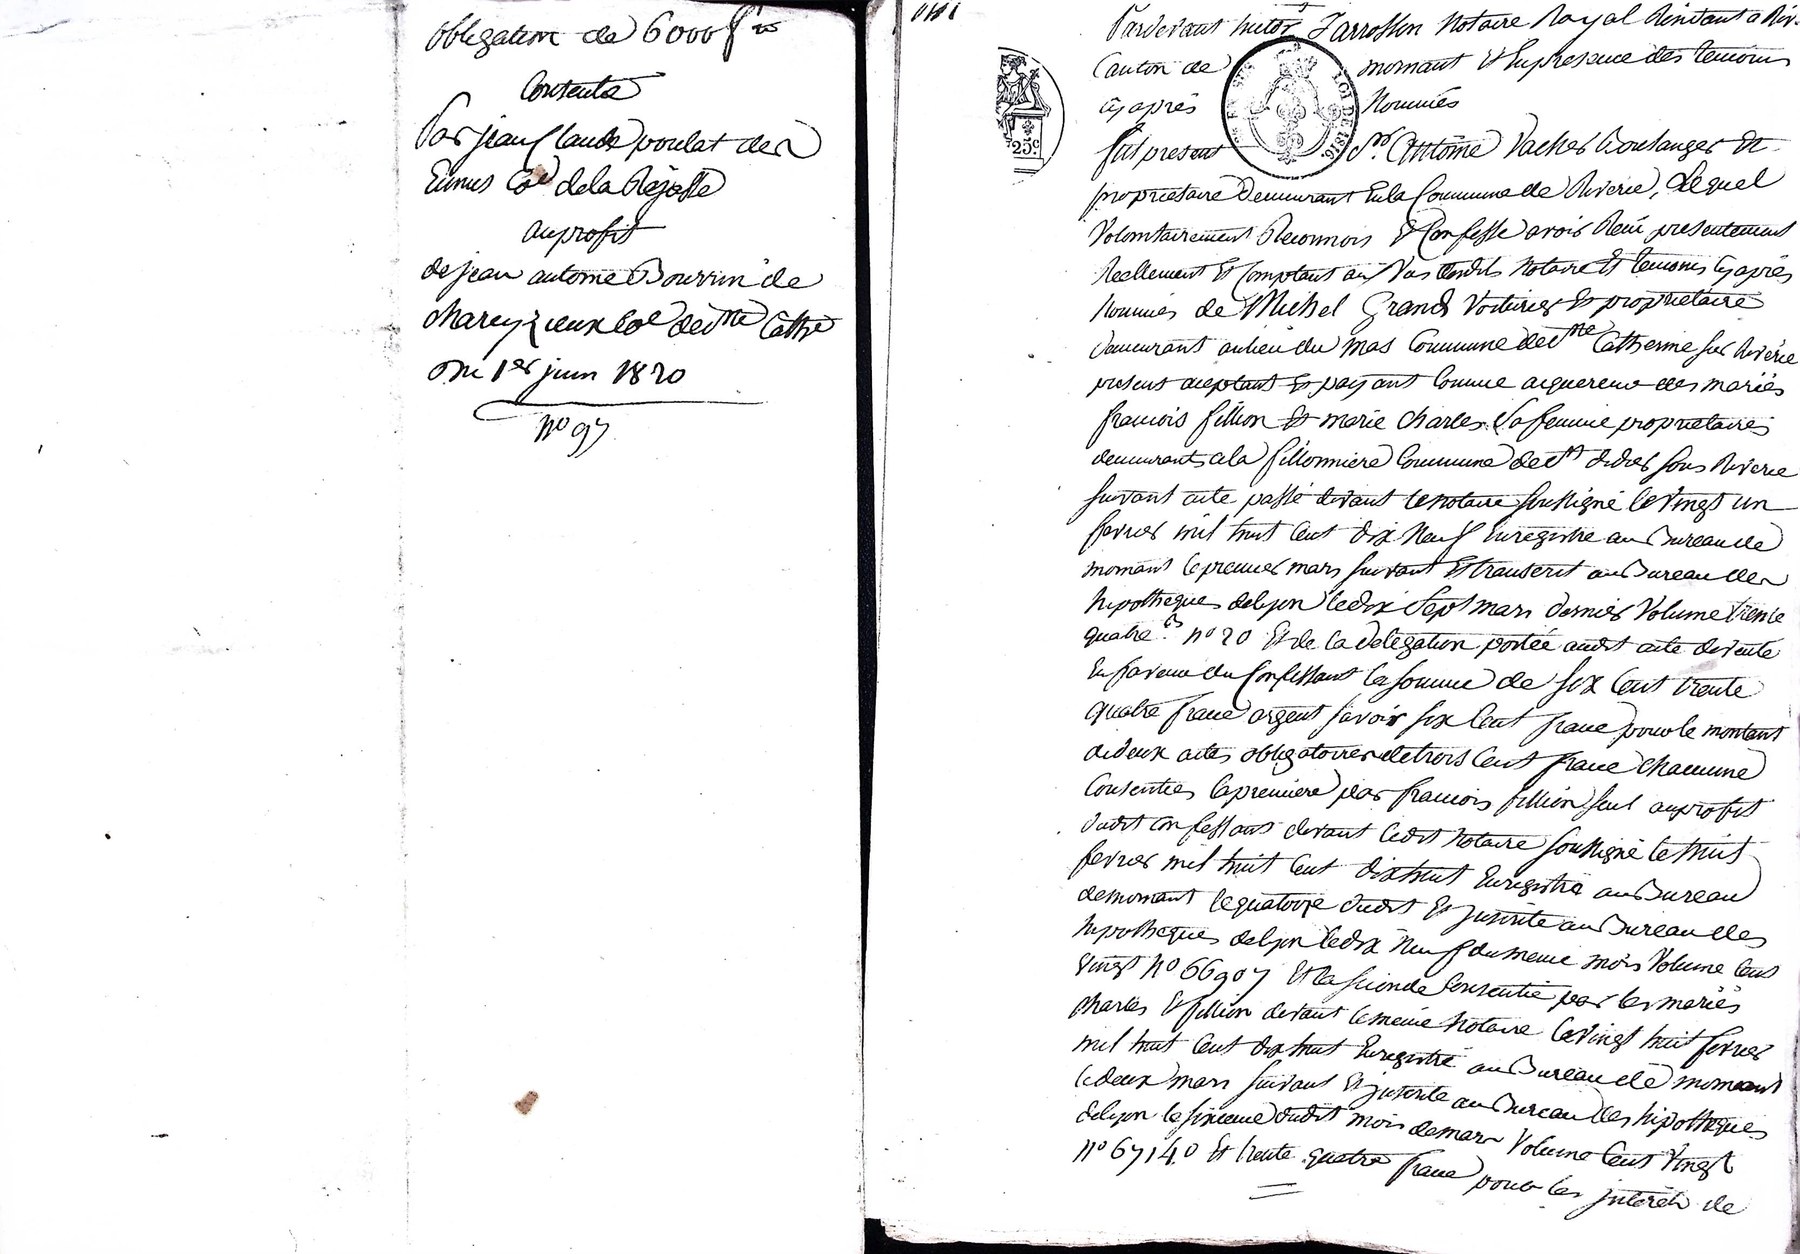 obligation de 6000 f
Consentie
Par jean Claude poulat des
Eumes Cne de la Rajasse
au profit
de jean antoine Bourrin de
Chareyzieux Cne de Ste Cathe
Du 1er juin 1820
No 97
Pardevant victor Jarrosson Notaire Royal Résidant a Riv.
Canton de mornant Et En presence des temoins
cy après Nommés
fut present Sr. Antoine Vacher Boulanger Et
propriétaire Demeurant En la Commune de Riverie, Lequel
Volontairement Reconnois Et Confesse avoir Recu presentement
Reellement Et Comptant aux Vus desdits Notaire Et temoins cy après
Nommés de Michel Grand Voiturier Et propriétaire
demeurant au lieu du mas Commune de Ste Catherine sur Riverie
present aceptant Et payant Comme acquereur des mariés
francois fillion Et marie Charles Sa femme propriétaires
demeurants a la fillonnière Commune de St didier sous Riverie
suivant acte passé devant le notaire soussigné le Vingt un
fevrier mil huit Cent dix Neuf Enregistré au Bureau de
mornant le premier mars suivant Et transcrit au Bureau des
hipotheques de lyon le dix Sept mars dernier Volume trente
quatre no 20 Et de la delegation portée audit acte de vente
En faveur du Confessant la somme de six Cent trente
quatre franc argent savoir six Cent franc pour le montant
de deux actes obligatoires de trois Cent franc Chacune
Consenties la premiere par francois fillion seul au profit
dudit confessant devant ledit notaire soussigné le huit
fevrier mil huit Cent dix huit Enregistré au Bureau
de mornant le quatorze dudit Et jnscrite au Bureau des
hipotheques de lyon le dix Neuf du meme mois Volume Cent
Vingt No 66907 Et la seconde Consentie par les mariés
Charles Et fillion devant le meme Notaire le Vingt huit fevrier
mil huit Cent dix huit Enregistré au Bureau de mornant
le deux mars suivant Et jnscrite au Bureau des hipotheques
de lyon le sixieme dudit mois de mars Volume Cent Vingt
No 67140 Et trente quatre franc pour les jnterêts de
25c
LOI DE 1816